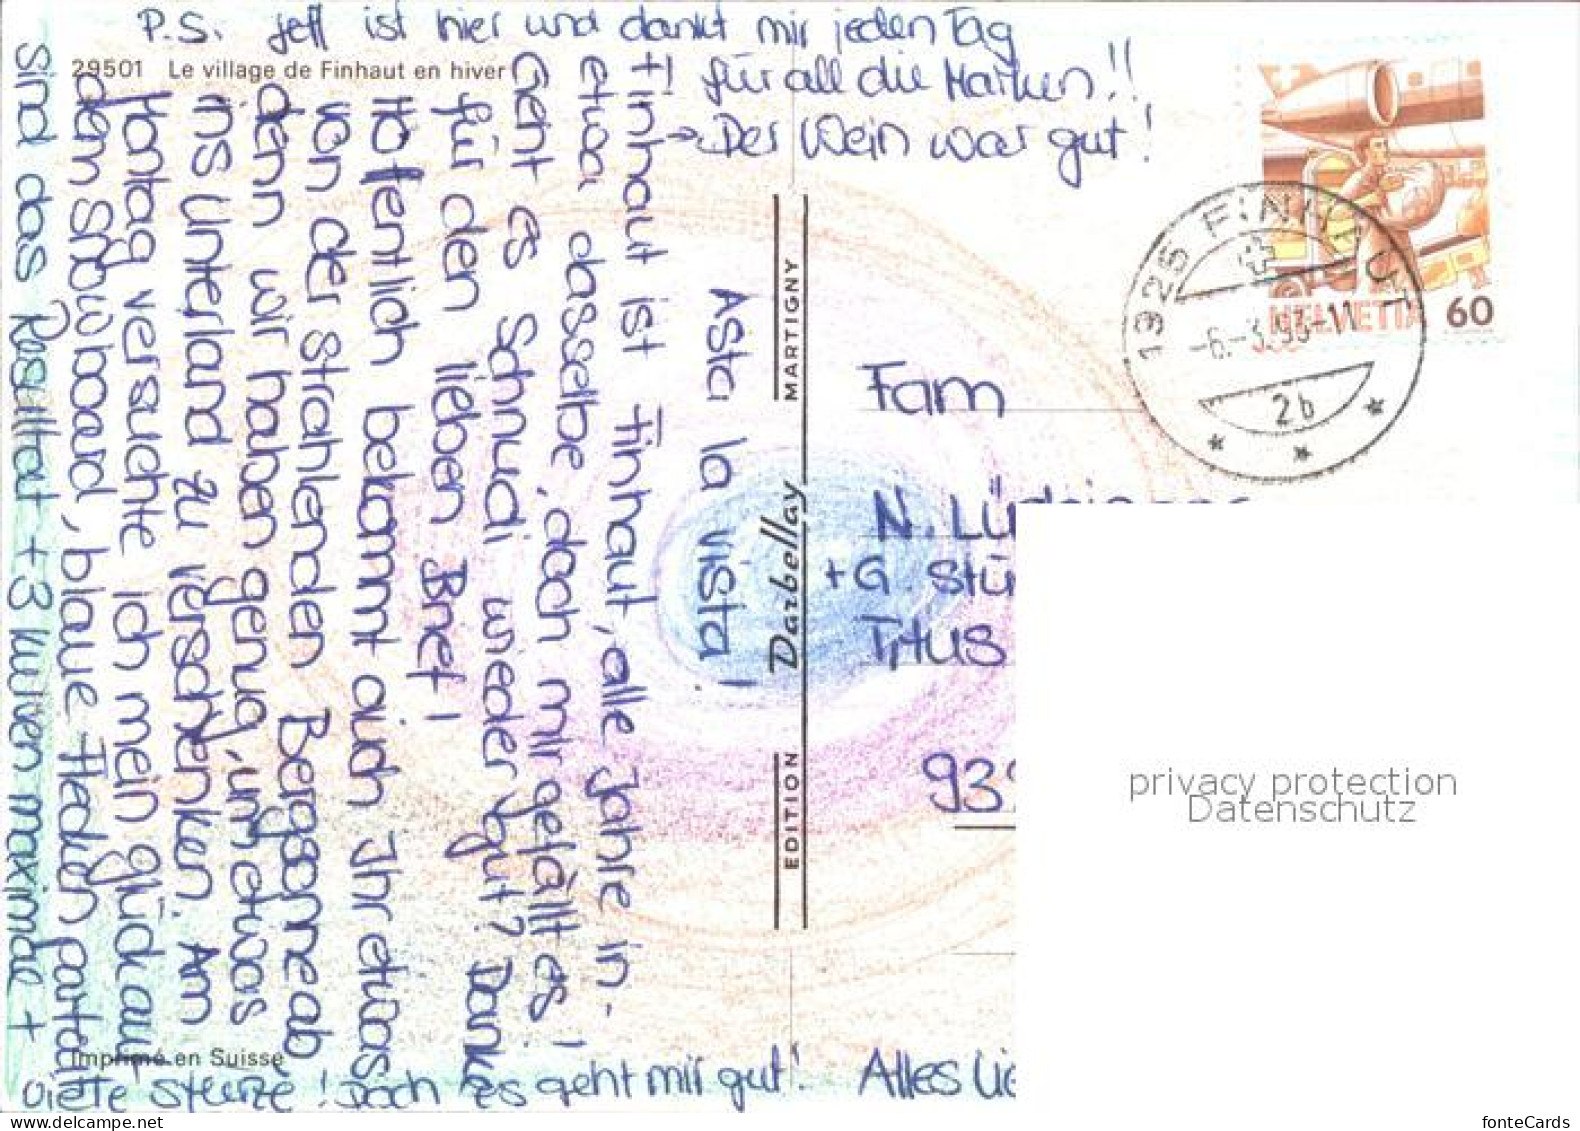 P.S. Jeff ist hier und dankt mir jeden Tag
für all die Marken!!
Der Wein war gut!
29501 Le village de Finhaut en hiver
Finhaut ist Finhaut, alle Jahre in-
etwa dasselbe, doch mir gefällt es!
Geht es Schnudi wieder gut? Danke
für den lieben Brief!
Hoffentlich bekommt auch Ihr etwas
von der strahlenden Bergsonne ab
denn wir haben genug, um etwas
ins Unterland zu verschenken. Am
Montag versuchte ich mein Glück auf
dem Snowboard, blaue Flecken
sind das Resultat + 3 Kurven maximal +
viele Stürze! Doch es geht mir gut!
Asta la vista!
Alles Lie
EDITION Darbellay MARTIGNY
Imprimé en Suisse
Fam
N. Lüdi
+ G. Stü
Titus
93
1925 FINHAUT
-6.-3.93-11
2b
HELVETIA 60
privacy protection
Datenschutz
fonteCards